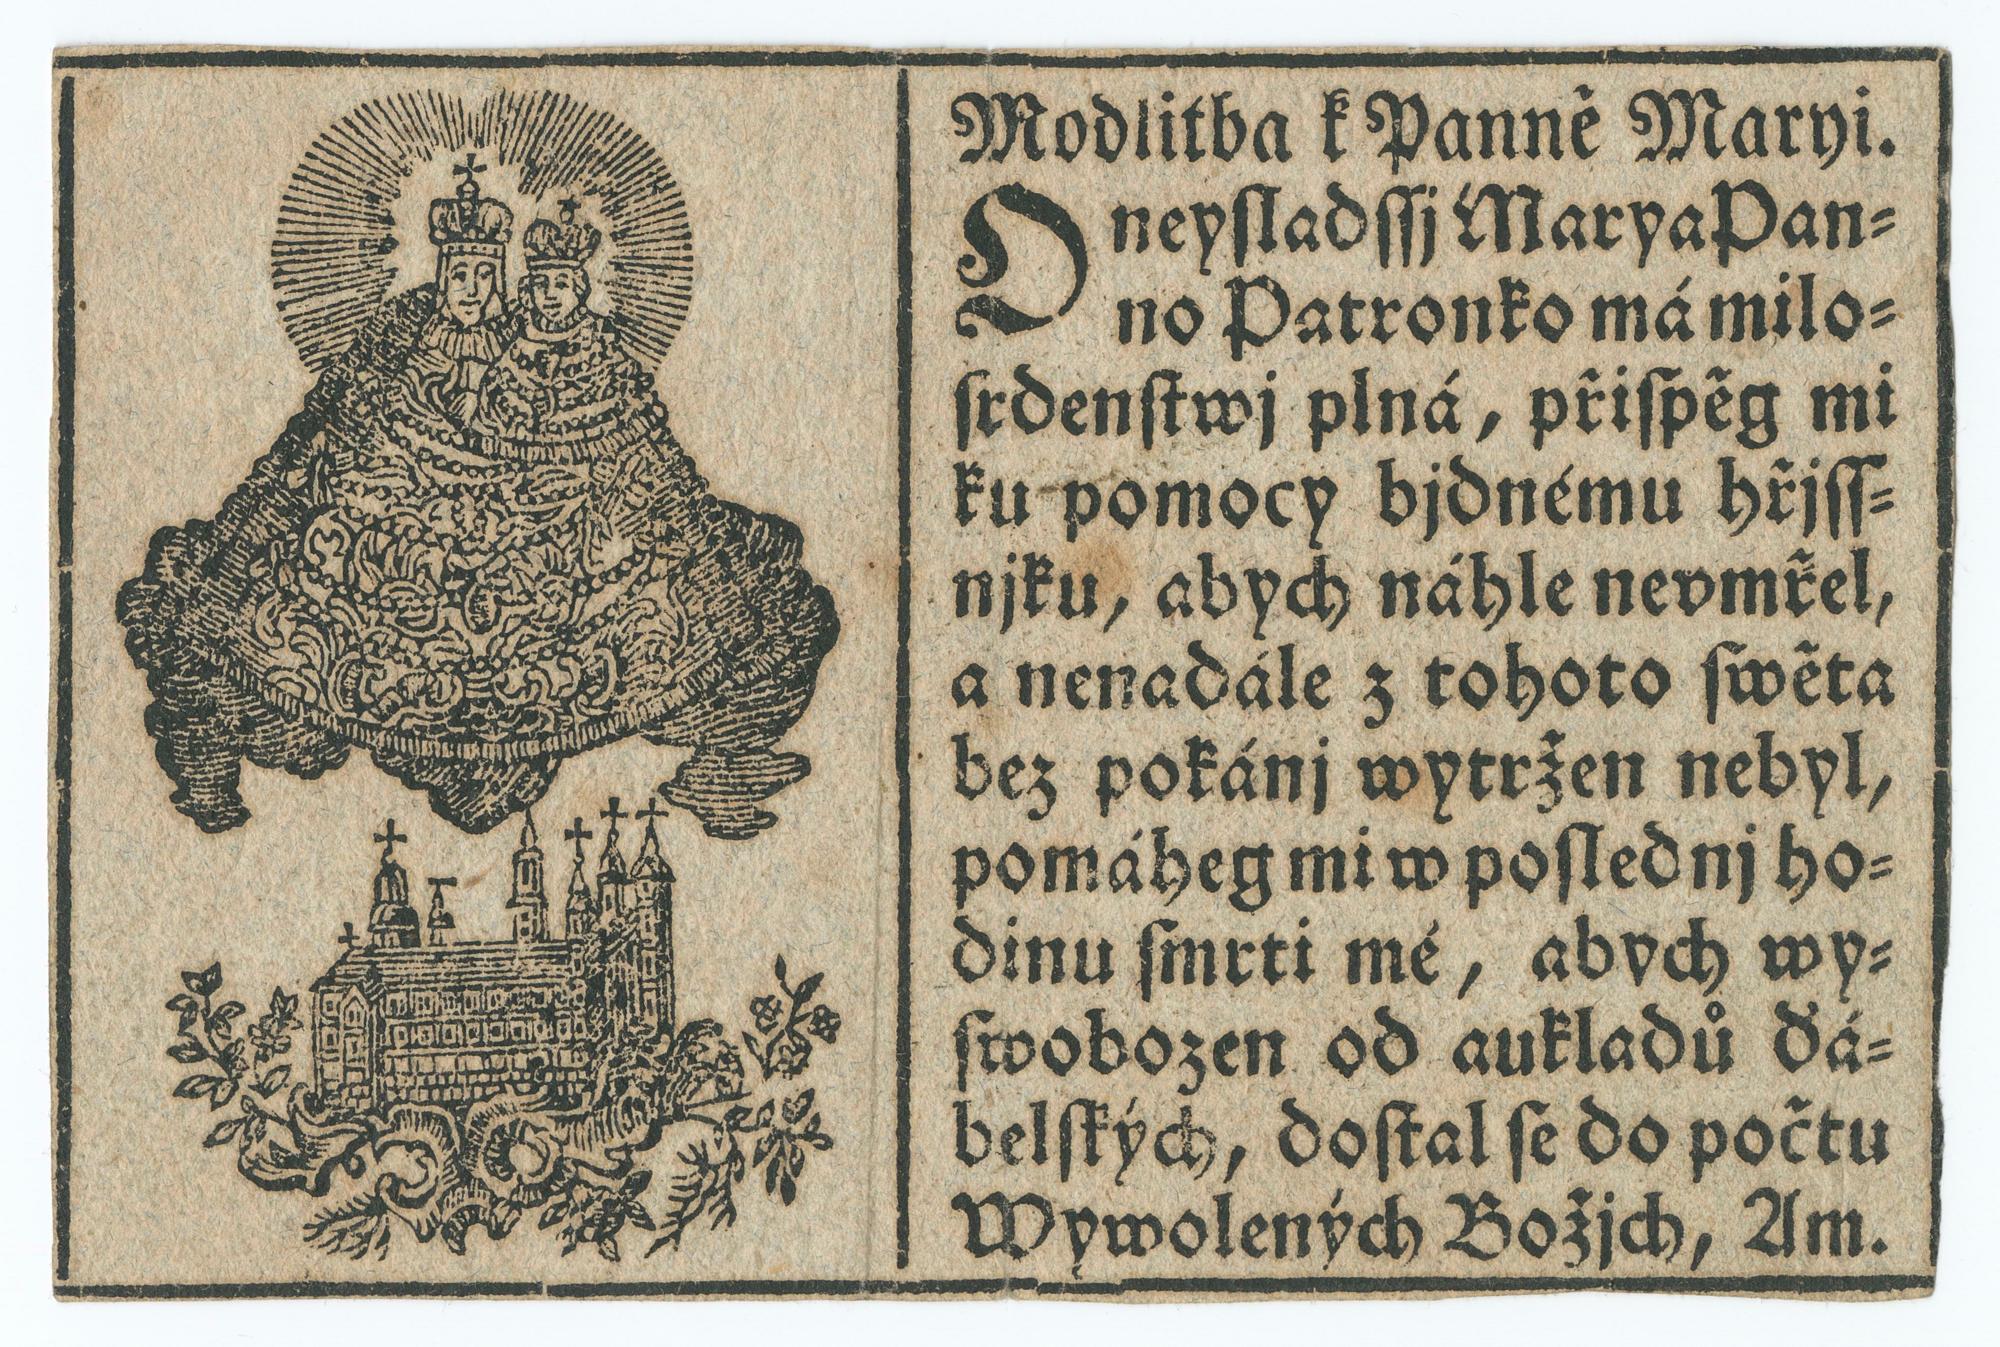 Modlitba k Panně Maryi.
O neyſladſſj Marya Pan-
no Patronko má milo-
srdenſtwj plná, přiſpěg mi
ku pomocy bjdnému hřjſſ-
njku, abych náhle nevmřel,
a nenadále z tohoto ſwěta
bez pokánj wytržen nebyl,
pomáheg mi w poſlednj ho-
dinu ſmrti mé, abych wy-
ſwobozen od aukladů ďá-
belſkých, doſtal ſe do počtu
Wywolených Božjch, Am.